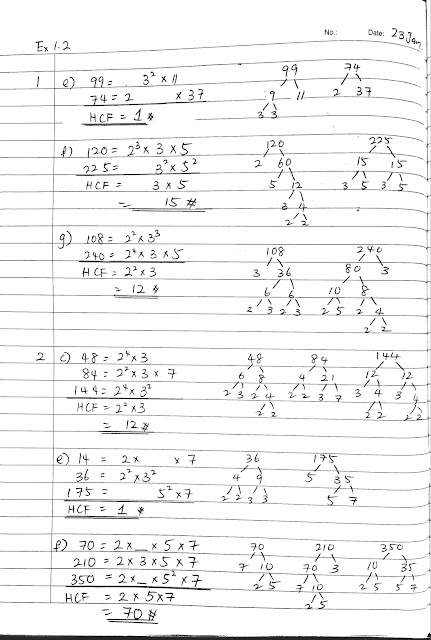 No.: Date: 23 Jan
Ex 1.2
1 e) 99 = 3² × 11
74 = 2 × 37
HCF = 1 #
99
9 11
3 3
74
2 37
f) 120 = 2³ × 3 × 5
225 = 3² × 5²
HCF = 3 × 5
= 15 #
120
2 60
5 12
3 4
2 2
225
15 15
3 5 3 5
g) 108 = 2² × 3³
240 = 2⁴ × 3 × 5
HCF = 2² × 3
= 12 #
108
3 36
6 6
2 3 2 3
240
80 3
10 8
2 5 2 4
2 2
2 c) 48 = 2⁴ × 3
84 = 2² × 3 × 7
144 = 2⁴ × 3²
HCF = 2² × 3
= 12 #
48
6 8
2 3 2 4
2 2
84
4 21
2 2 3 7
144
12 12
3 4 3 4
2 2 2 2
e) 14 = 2 × × 7
36 = 2² × 3²
175 = 5² × 7
HCF = 1 #
36
4 9
2 2 3 3
175
5 35
5 7
f) 70 = 2 × _ × 5 × 7
210 = 2 × 3 × 5 × 7
350 = 2 × _ × 5² × 7
HCF = 2 × 5 × 7
= 70 #
70
7 10
2 5
210
70 3
7 10
2 5
350
10 35
2 5 5 7